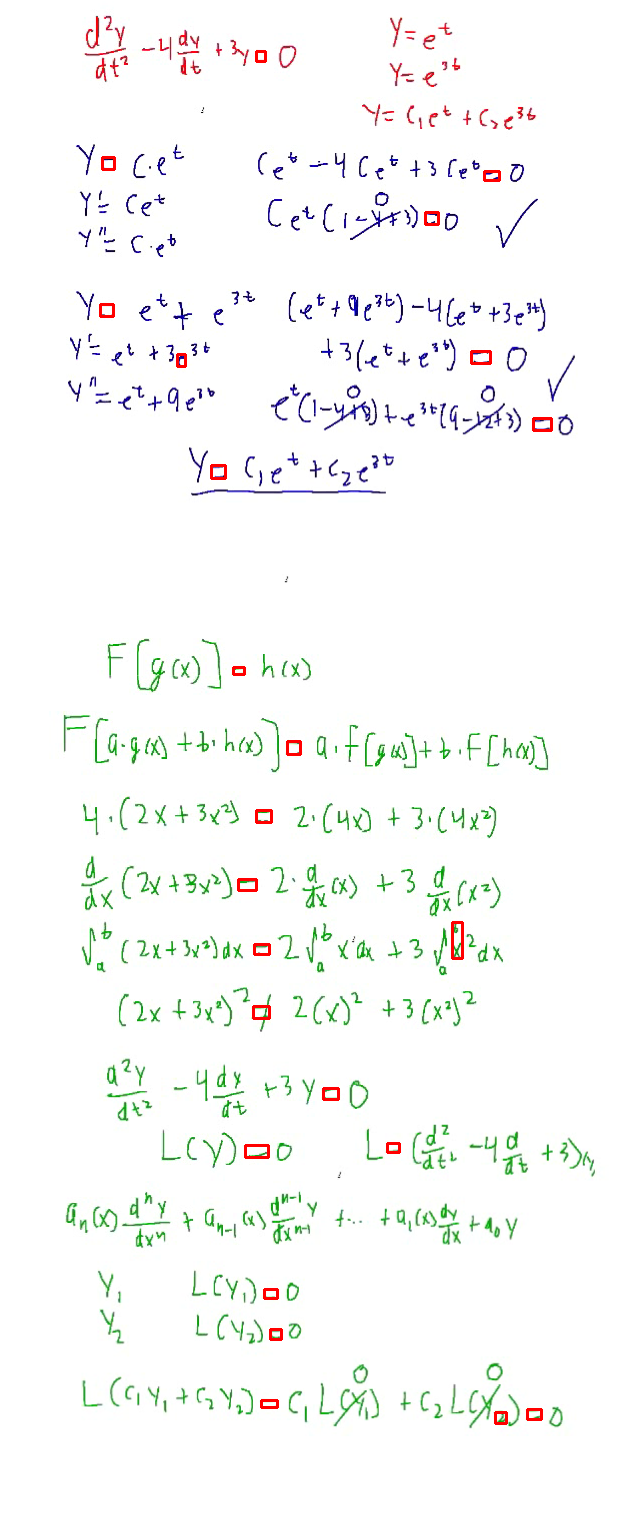 d²y/dt² - 4 dy/dt + 3y = 0
y = e^t
y = e^3t
y = C₁e^t + C₂e^3t
y = C·e^t
Ce^t - 4Ce^t + 3Ce^t = 0
y' = Ce^t
Ce^t(1-4+3) = 0 ✓
0
y'' = C·e^t
y = e^t + e^3t
(e^t + 9e^3t) - 4(e^t + 3e^3t)
y' = e^t + 3e^3t
+3(e^t + e^3t) = 0 ✓
y'' = e^t + 9e^3t
0 0
e^t(1-4+3) + e^3t(9-12+3) = 0
y = C₁e^t + C₂e^3t
F[g(x)] = h(x)
F[a·g(x) + b·h(x)] = a·F[g(x)] + b·F[h(x)]
4·(2x + 3x²) = 2·(4x) + 3·(4x²)
d/dx (2x + 3x²) = 2·d/dx (x) + 3 d/dx (x²)
∫_a^b (2x + 3x²)dx = 2∫_a^b x dx + 3∫_a^b x² dx
(2x + 3x²)² ≠ 2(x)² + 3(x²)²
d²y/dt² - 4 dy/dt + 3y = 0
L(y) = 0
L = (d²/dt² - 4 d/dt + 3)
a_n(x) d^n y/dx^n + a_n-1(x) d^n-1 y/dx^n-1 + ... + a₁(x) dy/dx + a₀y
y₁ L(y₁) = 0
y₂ L(y₂) = 0
0 0
L(C₁y₁ + C₂y₂) = C₁L(y₁) + C₂L(y₂) = 0